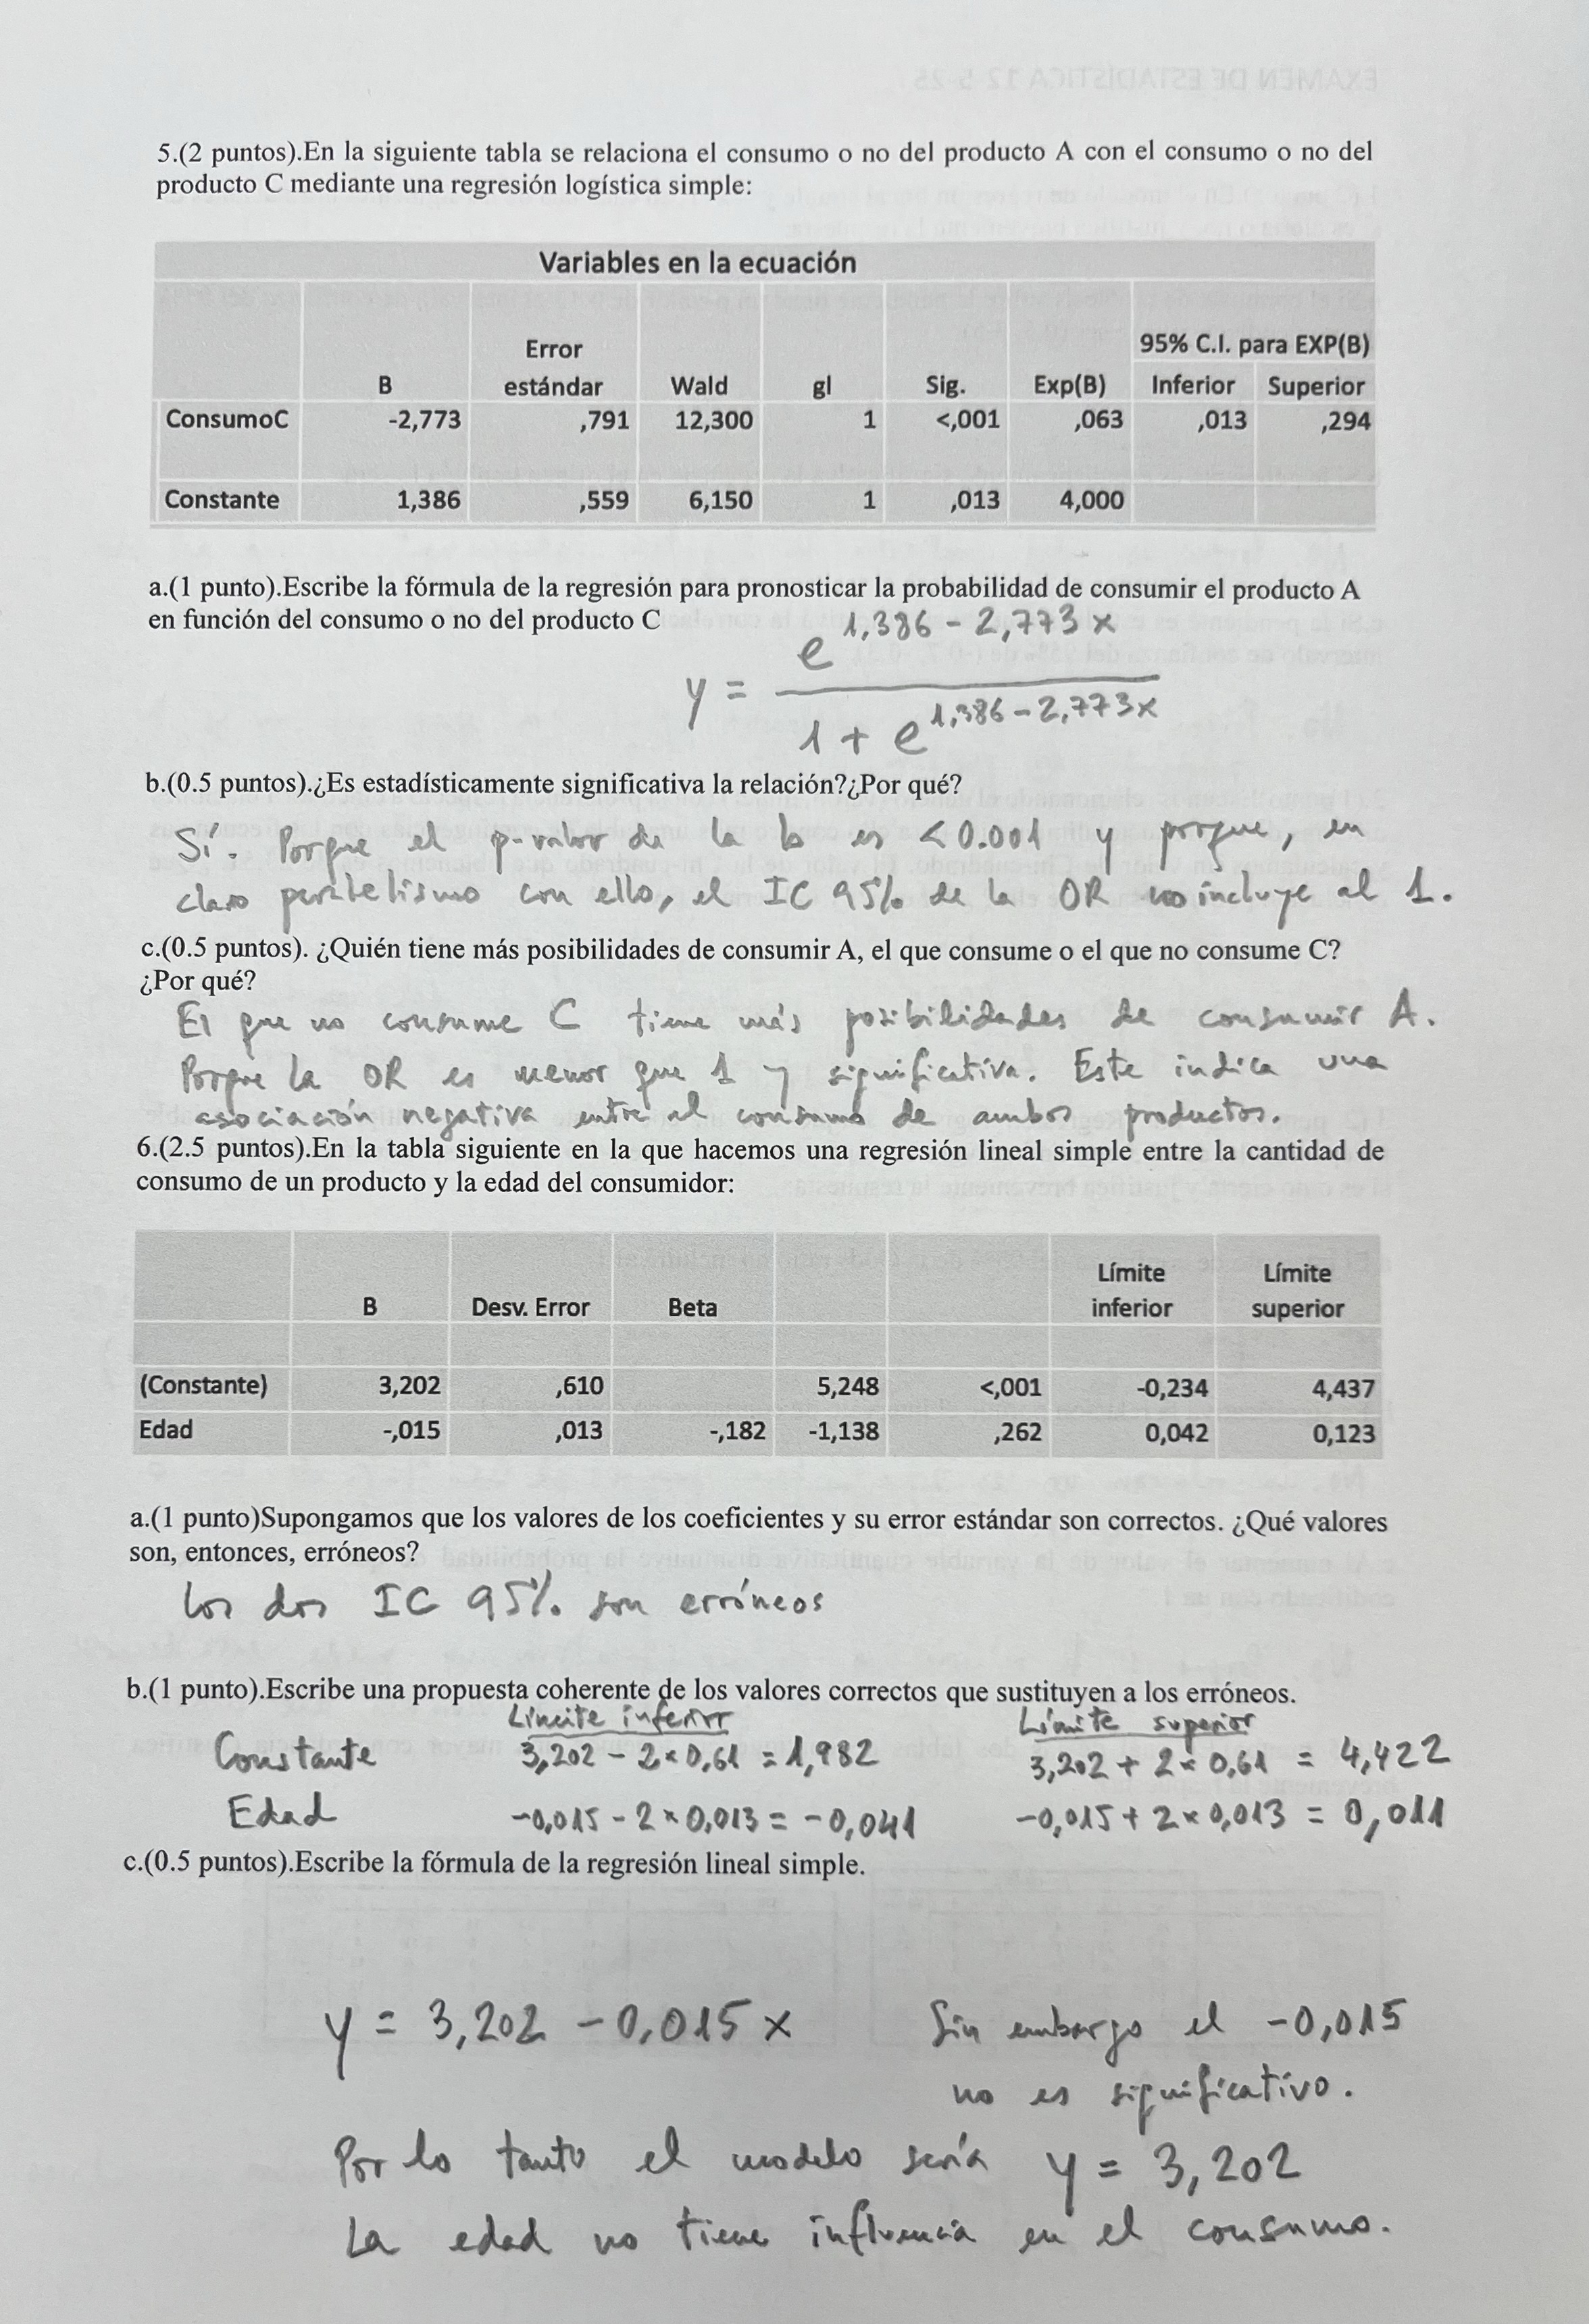 EXAMEN DE ESTADÍSTICA 12-5-25
5.(2 puntos).En la siguiente tabla se relaciona el consumo o no del producto A con el consumo o no del
producto C mediante una regresión logística simple:
Variables en la ecuación
95% C.I. para EXP(B)
B Error estándar Wald gl Sig. Exp(B) Inferior Superior
ConsumoC -2,773 ,791 12,300 1 <,001 ,063 ,013 ,294
Constante 1,386 ,559 6,150 1 ,013 4,000
a.(1 punto).Escribe la fórmula de la regresión para pronosticar la probabilidad de consumir el producto A
en función del consumo o no del producto C
y = e^(1,386 - 2,773 x) / (1 + e^(1,386 - 2,773x))
b.(0.5 puntos).¿Es estadísticamente significativa la relación?¿Por qué?
Sí. Porque el p-valor de la b es <0.001 y porque, en
claro paralelismo con ello, el IC 95% de la OR no incluye al 1.
c.(0.5 puntos). ¿Quién tiene más posibilidades de consumir A, el que consume o el que no consume C?
¿Por qué?
El que no consume C tiene más posibilidades de consumir A.
Porque la OR es menor que 1 y significativa. Este indica una
asociación negativa entre el consumo de ambos productos.
6.(2.5 puntos).En la tabla siguiente en la que hacemos una regresión lineal simple entre la cantidad de
consumo de un producto y la edad del consumidor:
B Desv. Error Beta Límite inferior Límite superior
(Constante) 3,202 ,610 5,248 <,001 -0,234 4,437
Edad -,015 ,013 -,182 -1,138 ,262 0,042 0,123
a.(1 punto)Supongamos que los valores de los coeficientes y su error estándar son correctos. ¿Qué valores
son, entonces, erróneos?
Los dos IC 95% son erróneos
b.(1 punto).Escribe una propuesta coherente de los valores correctos que sustituyen a los erróneos.
Límite inferior Límite superior
Constante 3,202 - 2×0,61 = 1,982 3,202 + 2×0,61 = 4,422
Edad -0,015 - 2×0,013 = -0,041 -0,015 + 2×0,013 = 0,011
c.(0.5 puntos).Escribe la fórmula de la regresión lineal simple.
y = 3,202 - 0,015 x Sin embargo el -0,015
no es significativo.
Por lo tanto el modelo sería y = 3,202
La edad no tiene influencia en el consumo.